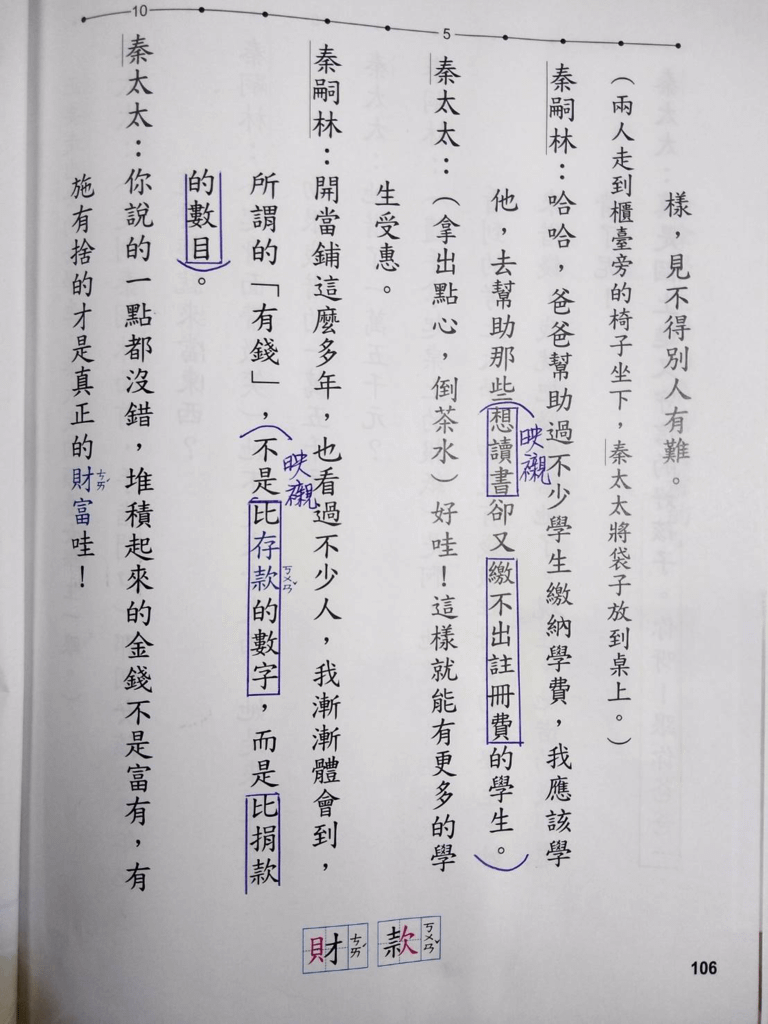 樣，見不得別人有難。
（兩人走到櫃臺旁的椅子坐下，秦太太將袋子放到桌上。）
秦嗣林：哈哈，爸爸幫助過不少學生繳納學費，我應該學
他，去幫助那些想讀書卻又繳不出註冊費的學生。
映襯
秦太太：（拿出點心，倒茶水）好哇！這樣就能有更多的學
生受惠。
秦嗣林：開當鋪這麼多年，也看過不少人，我漸漸體會到，
所謂的「有錢」，不是比存款的數字，而是比捐款
ㄎㄨㄢˇ
映襯
的數目。
秦太太：你說的一點都沒錯，堆積起來的金錢不是富有，有
施有捨的才是真正的財富哇！
ㄘㄞˊ
5
10
款 ㄎㄨㄢˇ
財 ㄘㄞˊ
106